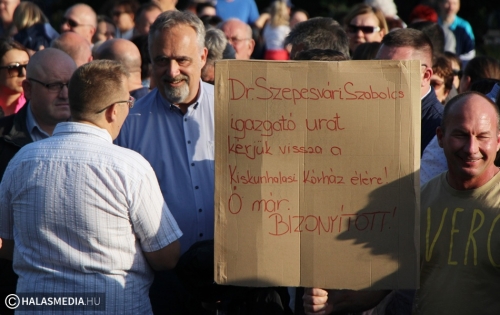 Dr. Szepesvári Szabolcs
igazgató urat
kérjük vissza a
Kiskunhalasi Kórház élére!
Ő már
BIZONYÍTOTT!
VERO
© HALASMEDIA.HU